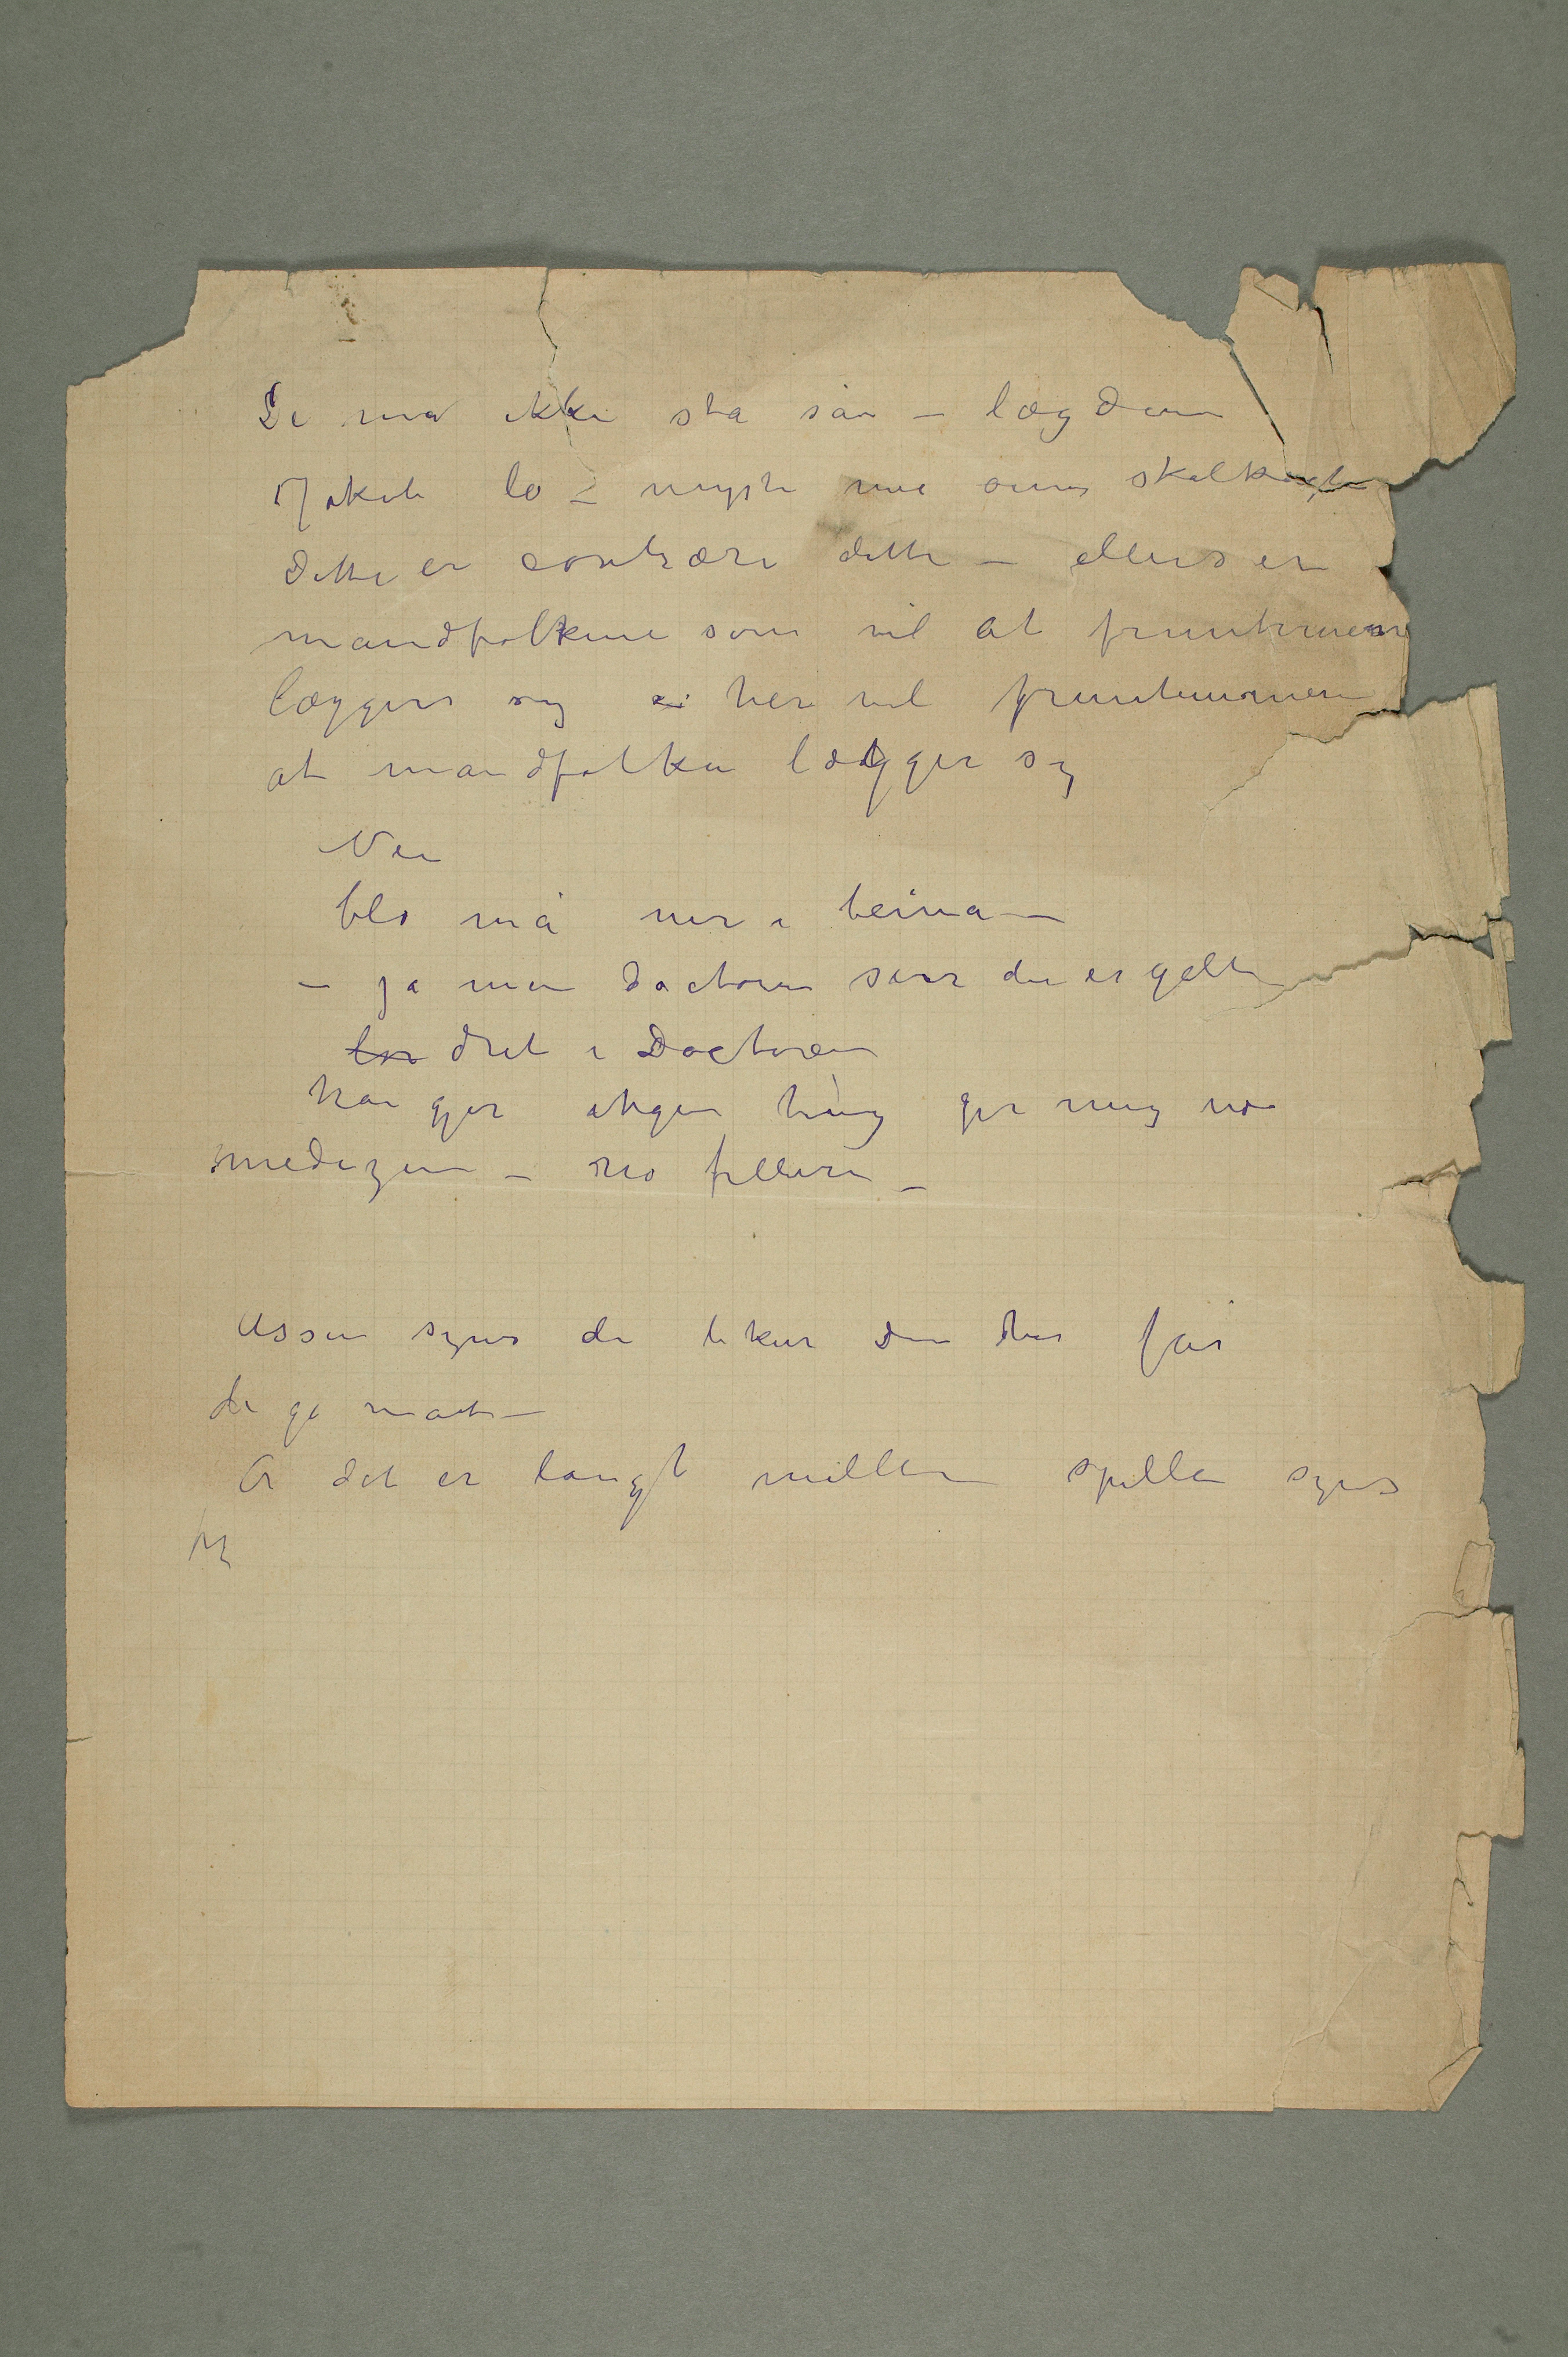 De må ikke stå sån – læg Dem
Jakob lo – myste me øine skalkagtig
Dette er contrære dette – ellers er
mandfolkene som vil at fruentimmerne
lægger sig – her vil fruentimmerne
at mandfolkene lægger sig
Nei
blo må ner i beina –
– ja men doctoren siær du er gælen
dret i Doctoren
han gjør ingen ting gir mig no
medezin – no pillere –
Åssen synes de liker Dem her får
de go mat –
Å det er langt mellem spillen synes
jeg